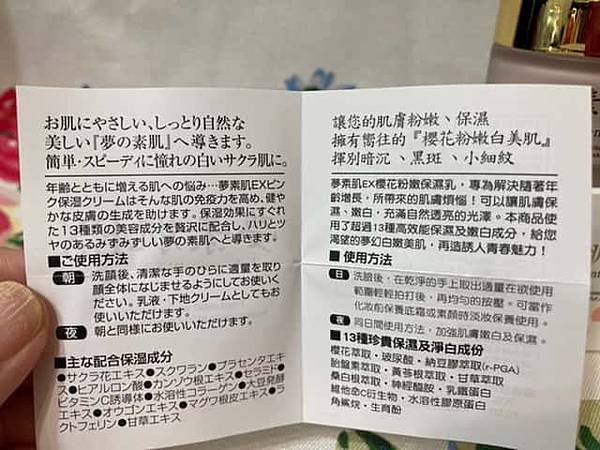 お肌にやさしい、しっとり自然な
美しい『夢の素肌』へ導きます。
簡単・スピーディに憧れの白いサクラ肌に。
年齢とともに増える肌への悩み…夢素肌EXピン
ク保湿クリームはそんな肌の免疫力を高め、健や
かな皮膚の生成を助けます。保湿効果にすぐれ
た13種類の美容成分を贅沢に配合し、ハリとツ
ヤのあるみずみずしい夢の素肌へと導きます。
■ご使用方法
朝 洗顔後、清潔な手のひらに適量を取り
顔全体になじませるようにしてお使いくだ
さい。乳液・下地クリームとしてもお
使いいただけます。
夜 朝と同様にお使いいただけます。
■主な配合保湿成分
●サクラ花エキス●スクワラン●プラセンタエキ
ス●ヒアルロン酸●カンゾウ根エキス●セラミド●
ビタミンC誘導体●水溶性コラーゲン●大豆発酵
エキス●オウゴンエキス●マグワ根皮エキス●ラ
クトフェリン●甘草エキス
讓您的肌膚粉嫩、保濕
擁有嚮往的『櫻花粉嫩白美肌』
揮別暗沉、黑斑、小細紋
夢素肌EX櫻花粉嫩保濕乳，專為解決隨著年
齡增長，所帶來的肌膚煩惱！可以讓肌膚保
濕、嫩白，充滿自然透亮的光澤。本商品使
用了超過13種高效能保濕及嫩白成分，給您
渴望的夢幻白嫩美肌，再造誘人青春魅力！
■ 使用方法
日 洗臉後，在乾淨的手上取出適量在欲使用
範圍輕輕拍打後，再均勻的按壓。可當作
化妝前保養底霜或素顏時淡妝保養使用。
夜 同日間使用方法，加強肌膚嫩白及保濕。
■13種珍貴保濕及淨白成份
櫻花萃取・玻尿酸・納豆膠萃取(r-PGA)
胎盤素萃取・黃苓根萃取・甘草萃取
桑白根萃取・神經醯胺・乳鐵蛋白
維他命C衍生物・水溶性膠原蛋白
角鯊烷・生育酚